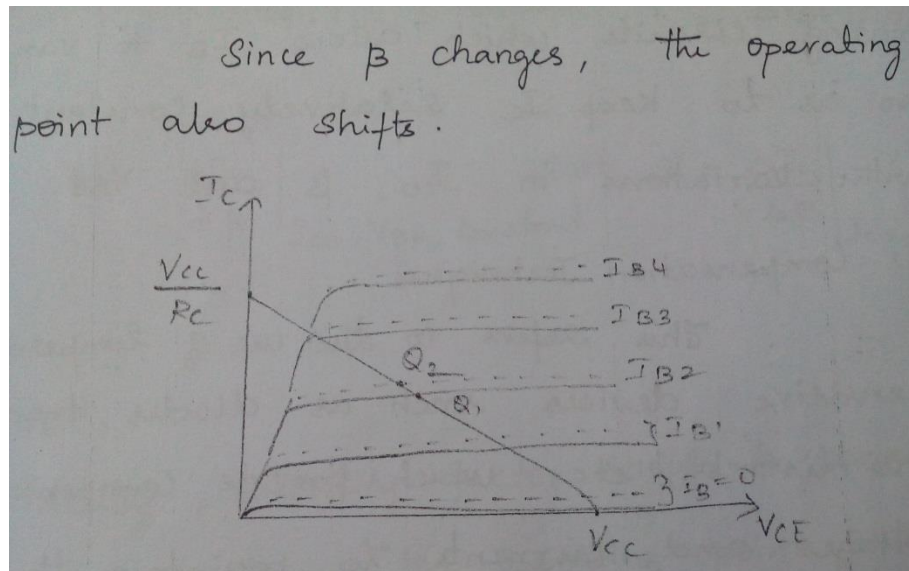 Since β changes, the operating
point also shifts.
IC
VCC
RC
IB4
IB3
Q2
IB2
Q1
IB1
IB=0
VCC
VCE